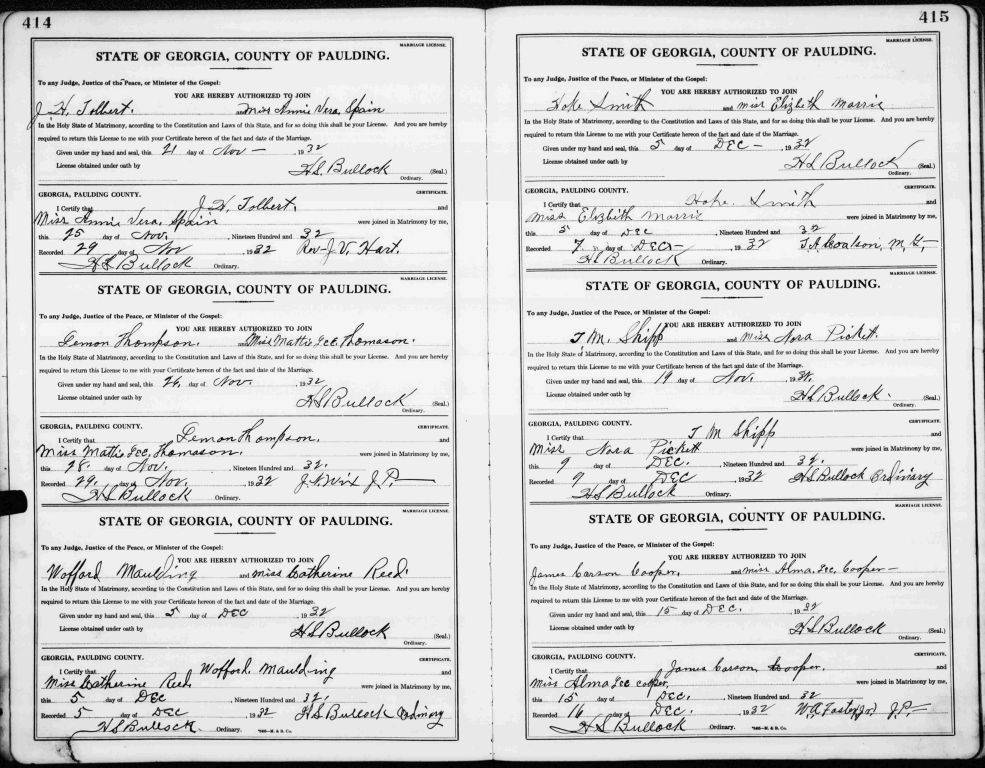 414
MARRIAGE LICENSE.
STATE OF GEORGIA, COUNTY OF PAULDING.
To any Judge, Justice of the Peace, or Minister of the Gospel:
YOU ARE HEREBY AUTHORIZED TO JOIN
J. H. Tolbert. and Miss Annie Vera, Spain
In the Holy State of Matrimony, according to the Constitution and Laws of this State, and for so doing this shall be your License. And you are hereby
required to return this License to me with your Certificate hereon of the fact and date of the Marriage.
Given under my hand and seal, this 21 day of Nov - , 1932
License obtained under oath by H.S. Bullock (Seal.)
Ordinary.
GEORGIA, PAULDING COUNTY. CERTIFICATE.
I Certify that J. H. Tolbert, and
Miss Annie Vera, Spain were joined in Matrimony by me,
this 25 day of Nov. , Nineteen Hundred and 32
Recorded 29 day of Nov , 1932 Rev. J. V. Hart.
H S Bullock Ordinary.
MARRIAGE LICENSE.
STATE OF GEORGIA, COUNTY OF PAULDING.
To any Judge, Justice of the Peace, or Minister of the Gospel:
YOU ARE HEREBY AUTHORIZED TO JOIN
Lemon Thompson. and Miss Mattie Lee Thomason.
In the Holy State of Matrimony, according to the Constitution and Laws of this State, and for so doing this shall be your License. And you are hereby
required to return this License to me with your Certificate hereon of the fact and date of the Marriage.
Given under my hand and seal, this 26, day of Nov. , 1932
License obtained under oath by H S Bullock (Seal.)
Ordinary.
GEORGIA, PAULDING COUNTY. CERTIFICATE.
I Certify that Lemon Thompson. and
Miss Mattie Lee, Thomason. were joined in Matrimony by me,
this 28. day of Nov. , Nineteen Hundred and 32.
Recorded 29, day of Nov. , 1932 J. P.
H S Bullock Ordinary.
MARRIAGE LICENSE.
STATE OF GEORGIA, COUNTY OF PAULDING.
To any Judge, Justice of the Peace, or Minister of the Gospel:
YOU ARE HEREBY AUTHORIZED TO JOIN
Wofford Maulding and Miss Catherine Reed.
In the Holy State of Matrimony, according to the Constitution and Laws of this State, and for so doing this shall be your License. And you are hereby
required to return this License to me with your Certificate hereon of the fact and date of the Marriage.
Given under my hand and seal, this 5 day of DEC , 1932
License obtained under oath by H S Bullock (Seal.)
Ordinary.
GEORGIA, PAULDING COUNTY. CERTIFICATE.
I Certify that Wofford. Maulding and
Miss Catherine Reed were joined in Matrimony by me,
this 5 day of DEC , Nineteen Hundred and 32,
Recorded 5 day of DEC , 1932 H S Bullock Ordinary
H S Bullock. Ordinary.
415
MARRIAGE LICENSE.
STATE OF GEORGIA, COUNTY OF PAULDING.
To any Judge, Justice of the Peace, or Minister of the Gospel:
YOU ARE HEREBY AUTHORIZED TO JOIN
Hoke Smith and Miss Elizbeth Morris
In the Holy State of Matrimony, according to the Constitution and Laws of this State, and for so doing this shall be your License. And you are hereby
required to return this License to me with your Certificate hereon of the fact and date of the Marriage.
Given under my hand and seal, this 5 day of DEC - , 1932
License obtained under oath by H S Bullock (Seal.)
Ordinary.
GEORGIA, PAULDING COUNTY. CERTIFICATE.
I Certify that Hoke. Smith and
Miss Elizbeth Morris were joined in Matrimony by me,
this 5 day of DEC , Nineteen Hundred and 32
Recorded 7 day of DEC - , 1932 T. A. Coalson, M, G, -
H S Bullock Ordinary.
MARRIAGE LICENSE.
STATE OF GEORGIA, COUNTY OF PAULDING.
To any Judge, Justice of the Peace, or Minister of the Gospel:
YOU ARE HEREBY AUTHORIZED TO JOIN
T M. Shipp and Miss Nora Pickett.
In the Holy State of Matrimony, according to the Constitution and Laws of this State, and for so doing this shall be your License. And you are hereby
required to return this License to me with your Certificate hereon of the fact and date of the Marriage.
Given under my hand and seal, this 19 day of Nov. , 1932.
License obtained under oath by H S Bullock. (Seal.)
Ordinary.
GEORGIA, PAULDING COUNTY. CERTIFICATE.
I Certify that T M Shipp and
Miss Nora Pickett were joined in Matrimony by me,
this 9 day of DEC. , Nineteen Hundred and 32.
Recorded 9 day of DEC , 1932 H S Bullock Ordinary
H S Bullock Ordinary.
MARRIAGE LICENSE.
STATE OF GEORGIA, COUNTY OF PAULDING.
To any Judge, Justice of the Peace, or Minister of the Gospel:
YOU ARE HEREBY AUTHORIZED TO JOIN
James Carson Cooper, and Miss Alma, Lee, Cooper -
In the Holy State of Matrimony, according to the Constitution and Laws of this State, and for so doing this shall be your License. And you are hereby
required to return this License to me with your Certificate hereon of the fact and date of the Marriage.
Given under my hand and seal, this 15 day of DEC. , 1932
License obtained under oath by H S Bullock (Seal.)
Ordinary.
GEORGIA, PAULDING COUNTY. CERTIFICATE.
I Certify that James Carson Cooper. and
Miss Alma Lee Cooper, were joined in Matrimony by me,
this 15 day of DEC. , Nineteen Hundred and 32
Recorded 16 day of DEC. , 1932 W. A. Foster, Jr. J. P. -
H S Bullock Ordinary.